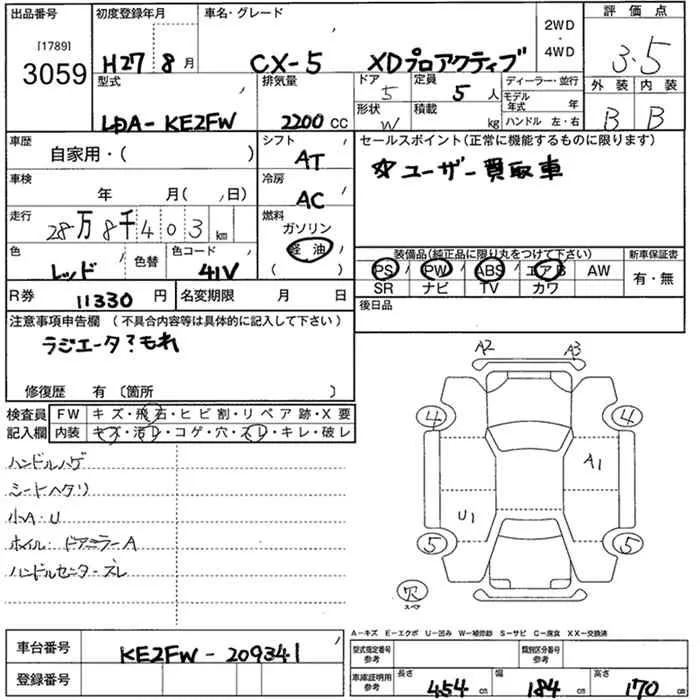 出品番号
[1789]
3059
初度登録年月
H27 8 月
車名・グレード
CX-5 XDプロアクティブ
2WD
・
4WD
評価点
3.5
外装 内装
B B
型式
LDA-KE2FW
排気量
2200 CC
ドア
5
形状
W
定員
5 人
積載
kg
ディーラー・並行
モデル年式 年
ハンドル 左・右
車歴
自家用・( )
シフト
AT
車検
年 月( 日)
冷房
AC
走行
28万8千403 km
燃料
ガソリン
軽油
( )
色
レッド
色替
色コード
41V
R券 11330 円
名変期限 月 日
セールスポイント(正常に機能するものに限ります)
☆ユーザー買取車
装備品(純正品に限り丸をつけて下さい)
PS PW ABS エアB AW
SR ナビ TV カワ
新車保証書
有・無
後日品
注意事項申告欄 (不具合内容等は具体的に記入して下さい)
ラジエータ?もれ
修復歴 有 〔箇所 〕
検査員
記入欄
FW キズ・飛石・ヒビ割・リペア跡・X要
内装 キズ・汚レ・コゲ・穴・スレ・キレ・破レ
ハンドルハゲ
シートヘタリ
小A・U
ホイル・ドアミラーA
ハンドルセンタースレ
A2 A3
4 4
A1
U1
5 5
穴
スペア
A-キズ E-エクボ U-凹み W-補修跡 S-サビ C-腐食 XX-交換済
車台番号
KE2FW-209341
登録番号
型式指定番号
参考
類別区分番号
参考
車庫証明用
参考
長さ 454 cm
幅 184 cm
高さ 170 cm